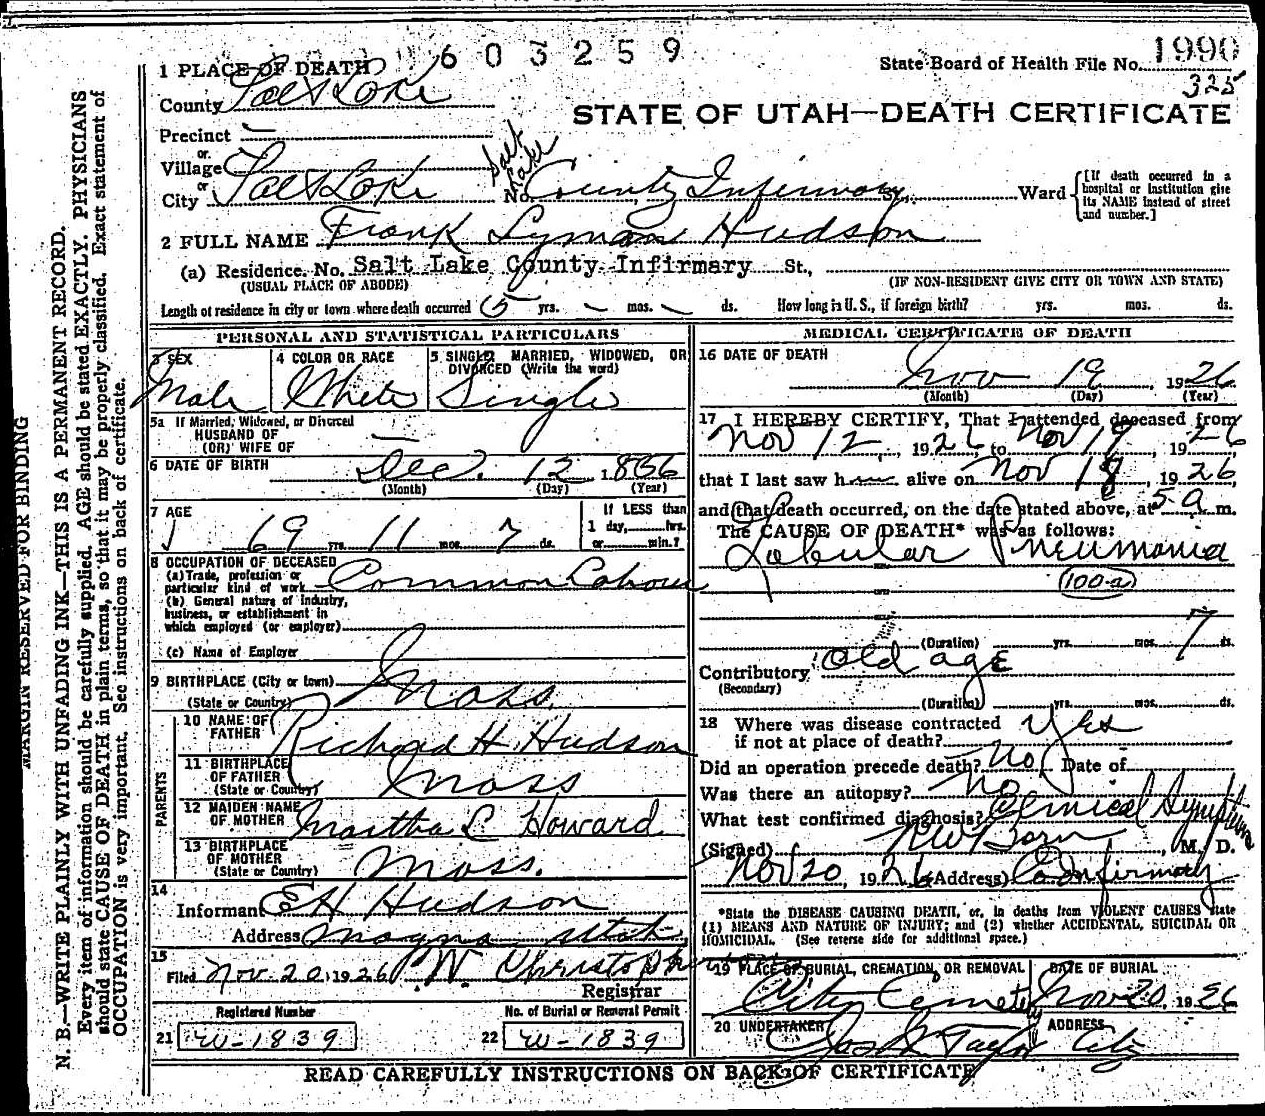 603259
State Board of Health File No. 1990
325
1 PLACE OF DEATH
County Salt Lake
STATE OF UTAH—DEATH CERTIFICATE
Precinct —
or
Village
or
City Salt Lake No. Salt Lake County Infirmary St., Ward
[If death occurred in a hospital or institution give its NAME instead of street and number.]
2 FULL NAME Frank Lyman Hudson
(a) Residence. No. Salt Lake County Infirmary St.,
(USUAL PLACE OF ABODE) (IF NON-RESIDENT GIVE CITY OR TOWN AND STATE)
Length of residence in city or town where death occurred 5 yrs. — mos. — ds. How long in U. S., if foreign birth? yrs. mos. ds.
PERSONAL AND STATISTICAL PARTICULARS
3 SEX Male
4 COLOR OR RACE White
5 SINGLE, MARRIED, WIDOWED, OR DIVORCED (Write the word) Single
5a If Married, Widowed, or Divorced
HUSBAND OF
(OR) WIFE OF —
6 DATE OF BIRTH Dec. 12 1856
(Month) (Day) (Year)
7 AGE 69 yrs. 11 mos. 7 ds.
If LESS than
1 day, hrs.
or min.?
8 OCCUPATION OF DECEASED
(a) Trade, profession or
particular kind of work Common Labour
(b) General nature of industry,
business, or establishment in
which employed (or employer)
(c) Name of Employer
9 BIRTHPLACE (City or town)
(State or Country) Mass.
PARENTS
10 NAME OF
FATHER Richard H. Hudson
11 BIRTHPLACE
OF FATHER
(State or Country) Mass
12 MAIDEN NAME
OF MOTHER Martha L Howard
13 BIRTHPLACE
OF MOTHER
(State or Country) Mass.
14
Informant E H Hudson
Address Magna Utah
15
Filed Nov. 20, 1926 W Christoph
Registrar
Registered Number
21 W-1839
No. of Burial or Removal Permit
22 W-1839
MEDICAL CERTIFICATE OF DEATH
16 DATE OF DEATH
Nov 19, 1926
(Month) (Day) (Year)
17 I HEREBY CERTIFY, That I attended deceased from
Nov 12, 1926, to Nov 19, 1926
that I last saw h alive on Nov 18, 1926,
and that death occurred, on the date stated above, at 5 a m.
The CAUSE OF DEATH* was as follows:
Lobular Pneumonia
100-a
(Duration) yrs. mos. 7 ds.
Contributory Old age
(Secondary)
(Duration) yrs. mos. ds.
18 Where was disease contracted
if not at place of death? Yes
Did an operation precede death? No Date of
Was there an autopsy? No
What test confirmed diagnosis? Clinical Symptoms
(Signed) , M. D.
Nov 20, 1926 (Address) Co Infirmary
*State the DISEASE CAUSING DEATH, or, in deaths from VIOLENT CAUSES state
(1) MEANS AND NATURE OF INJURY; and (2) whether ACCIDENTAL, SUICIDAL OR
HOMICIDAL. (See reverse side for additional space.)
19 PLACE OF BURIAL, CREMATION, OR REMOVAL DATE OF BURIAL
City Cemetery Nov 20, 1926
20 UNDERTAKER ADDRESS
Taylor City
READ CAREFULLY INSTRUCTIONS ON BACK OF CERTIFICATE
MARGIN RESERVED FOR BINDING
N. B.—WRITE PLAINLY WITH UNFADING INK—THIS IS A PERMANENT RECORD.
Every item of information should be carefully supplied. AGE should be stated EXACTLY. PHYSICIANS
should state CAUSE OF DEATH in plain terms, so that it may be properly classified. Exact statement of
OCCUPATION is very important. See instructions on back of certificate.